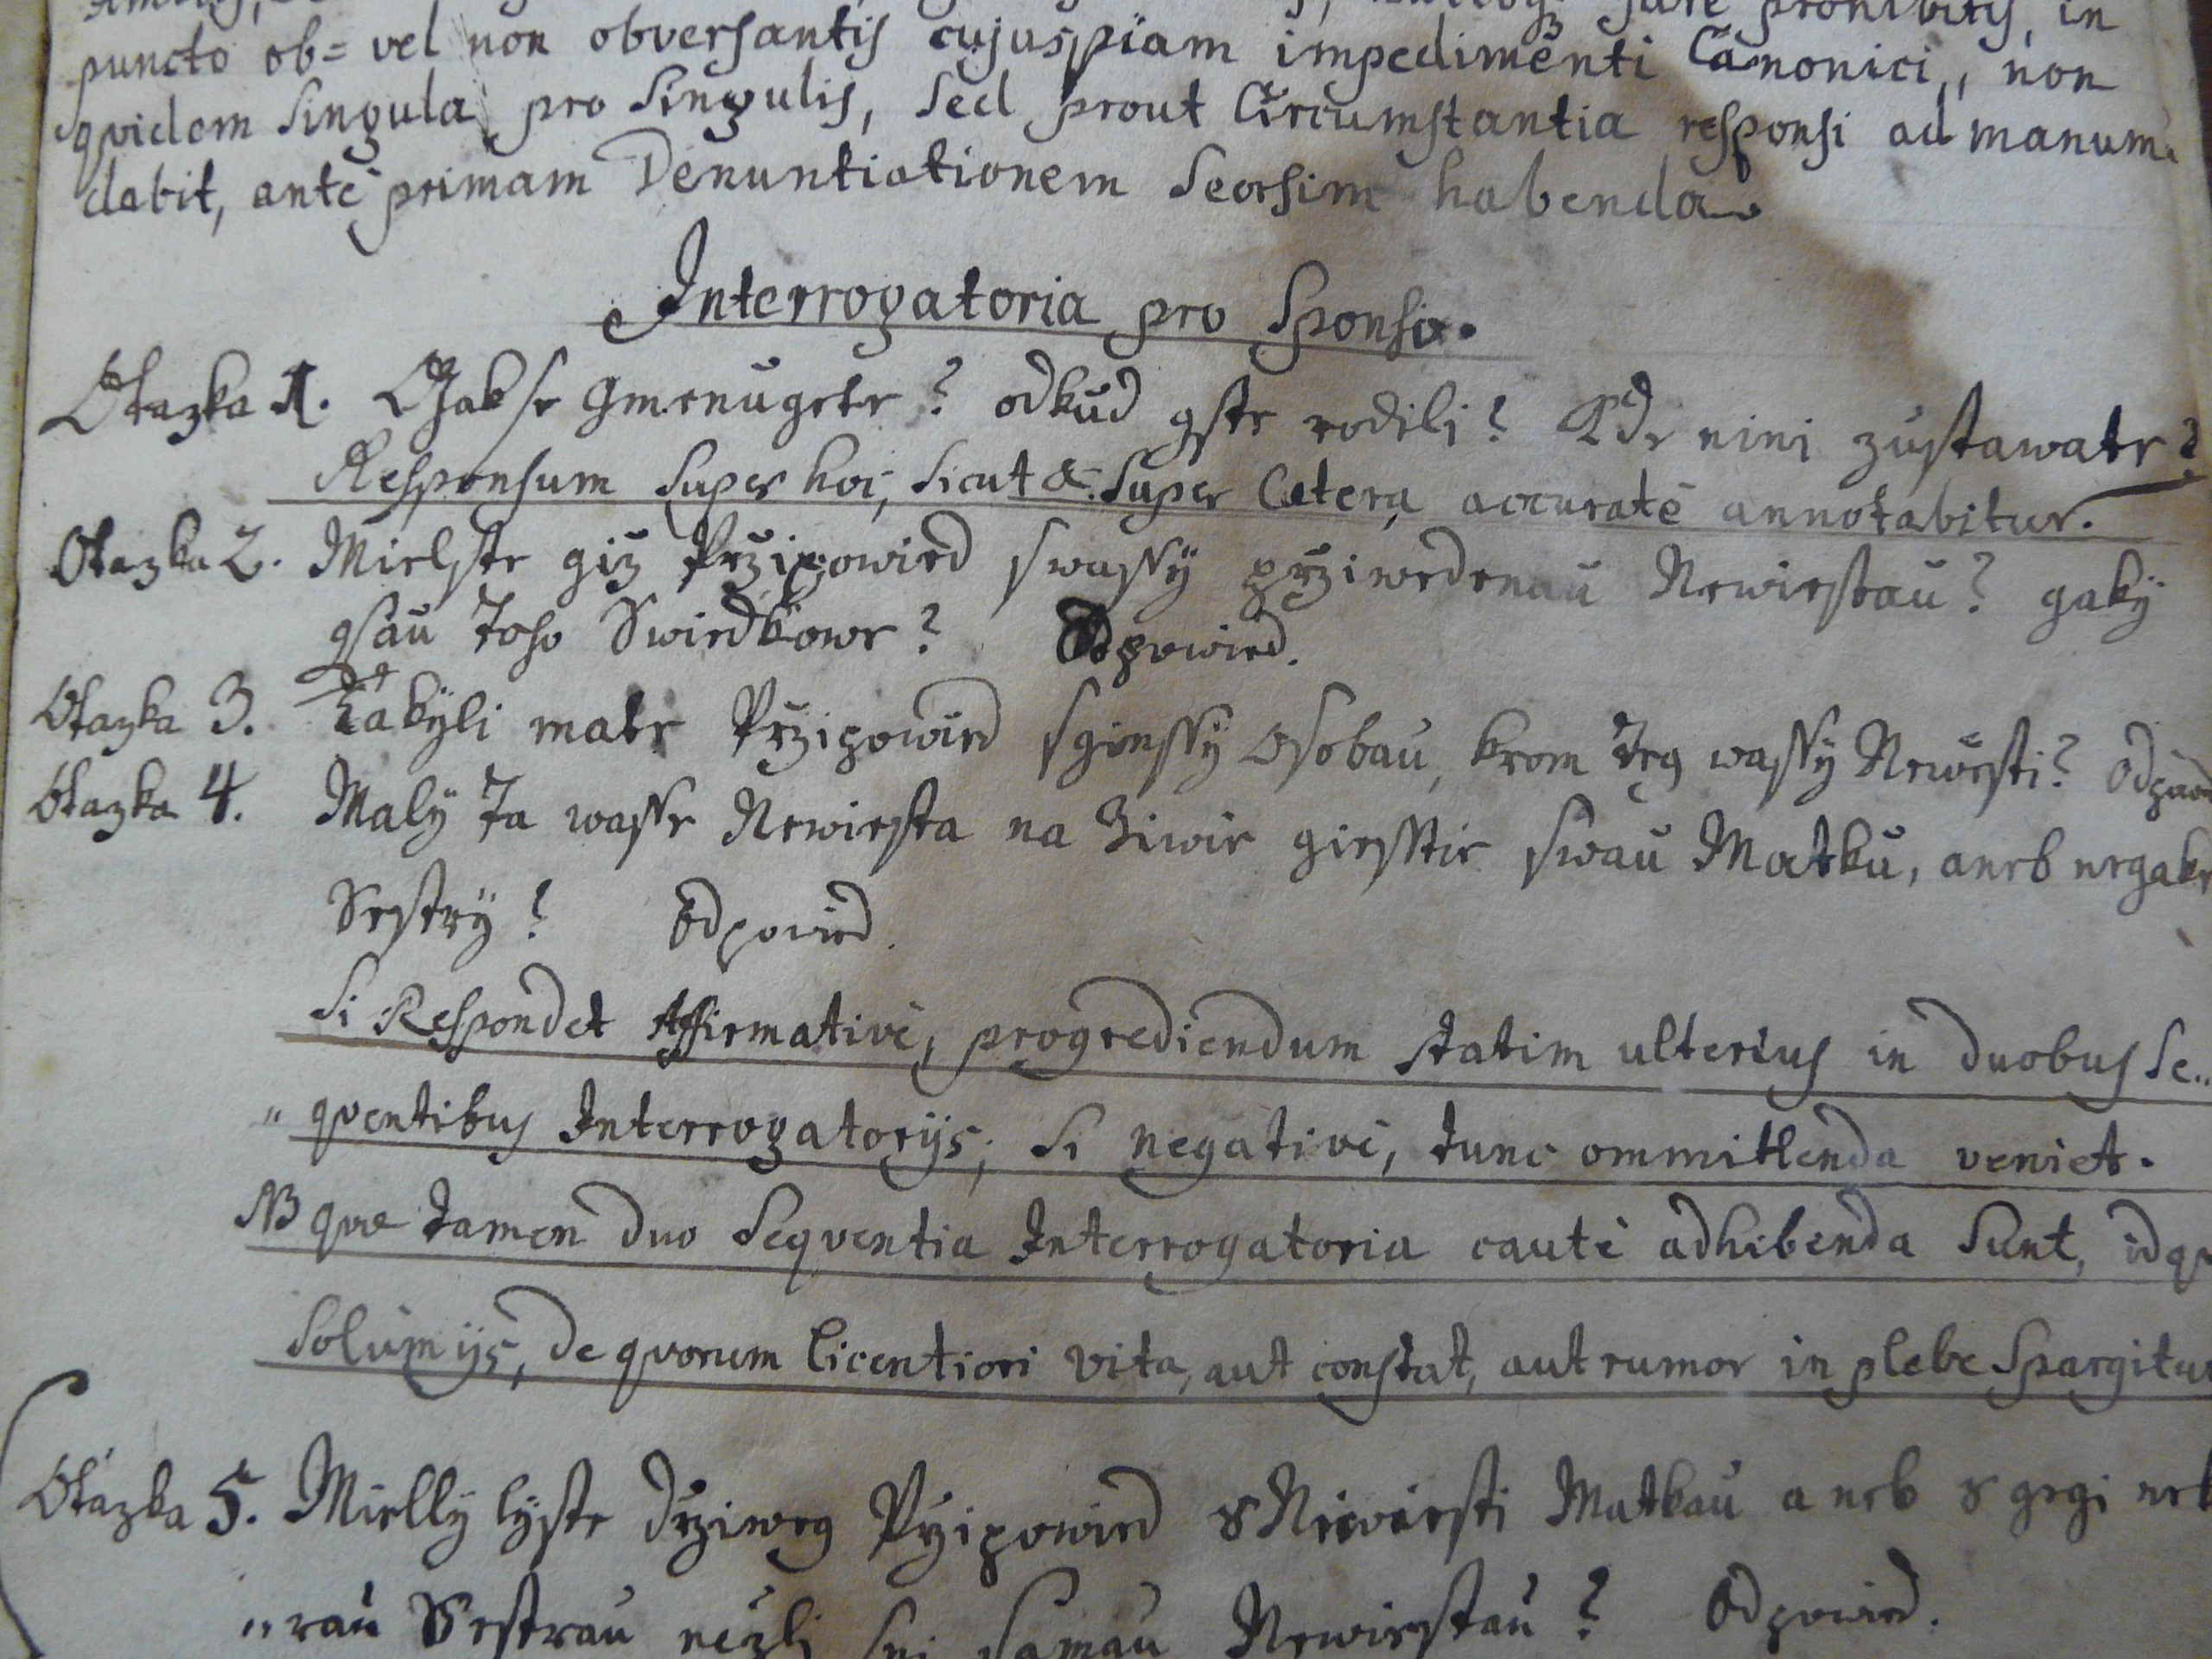 jure prohibitis, in
puncto ob= vel non obversantis cujuspiam impedimenti Canonici, non
qvidem Singula pro Singulis, Sed prout Circumstantia responsi ad manum
dabit, ante primam Denuntiationem Seorsim habenda.
Interrogatoria pro Sponso.
Otazka 1. Gak se Gmenugete? odkud gste rodili? Kde nini zustawate?
Responsum Super hoc, Sicut & Super Cetera accuratè annotabitur.
Otazka 2. Mielste giž Pržipowied s wassÿ pržiwedenaŭ Newiestaŭ? gakÿ
gsaŭ toho Swiedkowe? Odpowied.
Otazka 3. mate Pržipowied s ginssÿ Osobaŭ, krom teg wassÿ Newiesti?
Otazka 4. Malÿ ta wasse Newiesta na Ziwie giesstie swaŭ Matkŭ, aneb negake
Sestrÿ? Odpowied.
Si Respondet Affirmativè, progrediendum statim ulterius in duobus Se„
„qventibus Interrogatorijs, Si negativè, tunc ommittenda veniet.
NB qvae tamen duo Seqventia Interrogatoria cautè adhibenda Sunt, idq
Solum ijs, de qvorum licentiori vita, aut constat, aut rumor in plebe Spargitur
Otazka 5. Miellÿ lÿste držiweg Pržipowied s Newiesti Matkaŭ aneb s gegi
„raŭ Sestraŭ nežli samaŭ Newiestaŭ? Odpowied.